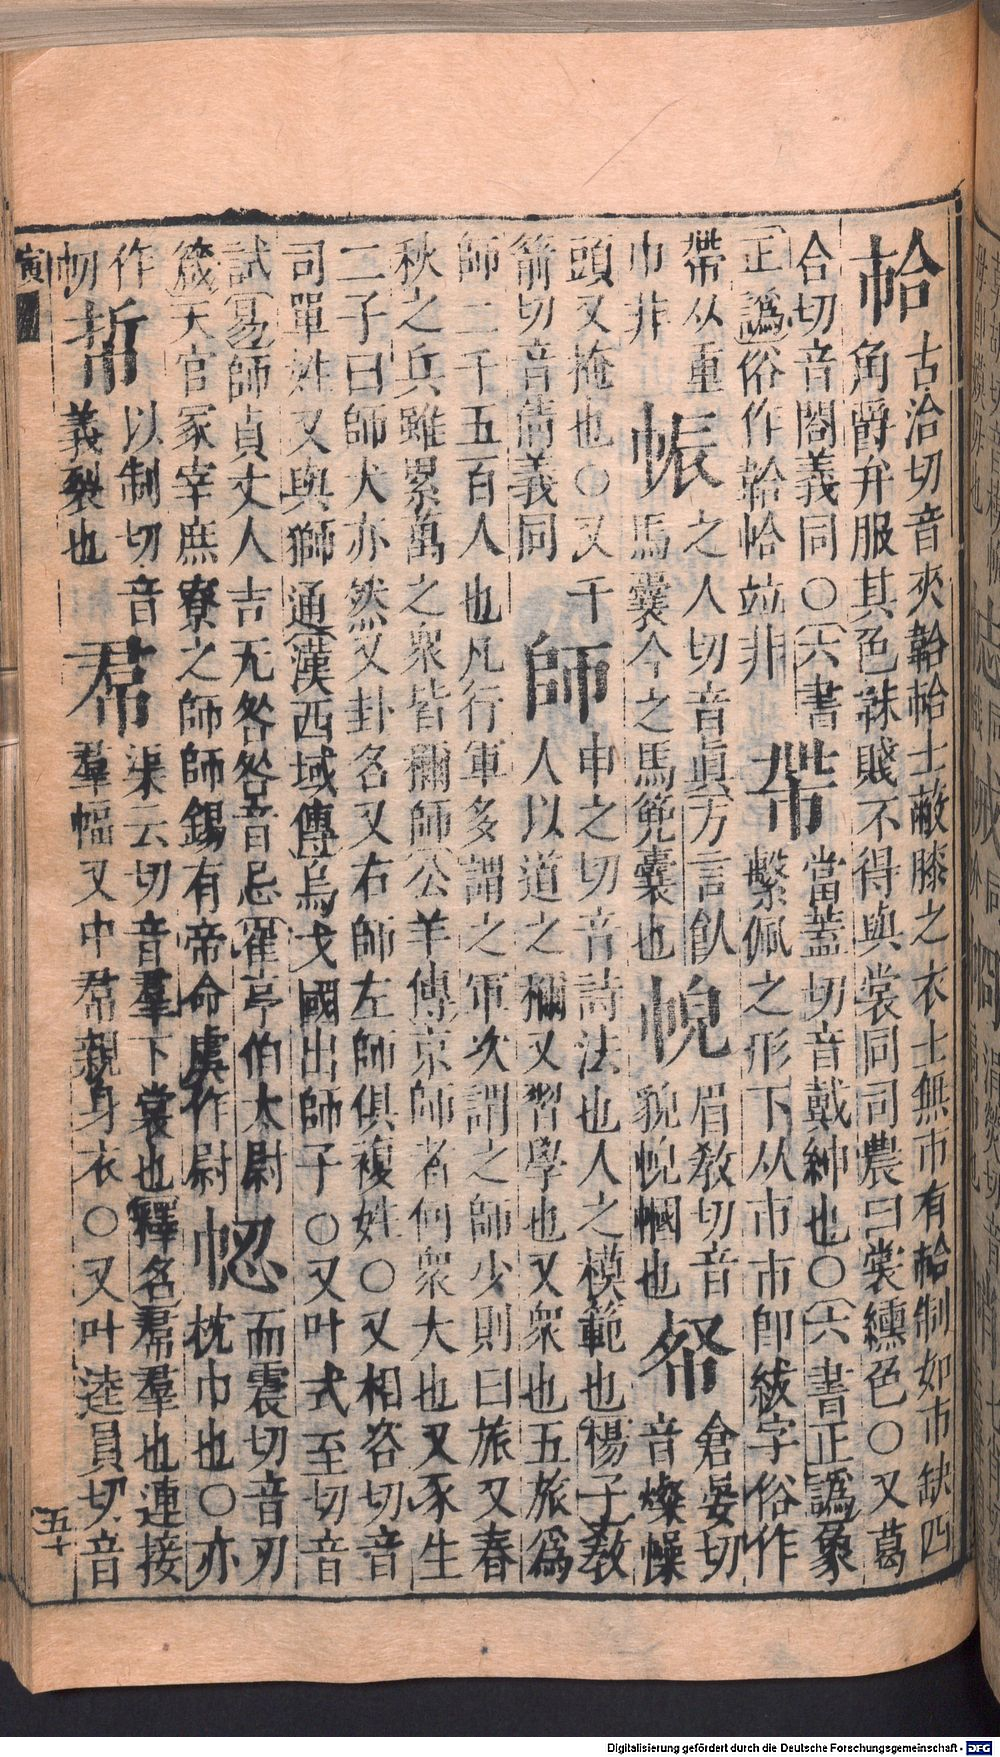 帢
古洽切音夾韐帢士蔽膝之衣士無市有帢制如市缺四
角爵弁服其色韎賤不得與裳同司農曰裳纁色○又葛
合切音閤義同○六書
正譌俗作韐帢竝非
帶
當蓋切音戴紳也○六書正譌象
繫佩之形下从巿巿即紱字俗作
帶从重
巾非
帪
之人切音眞方言飤
馬囊今之馬㲋囊也
帨
眉敎切音
貌帨帼也
倉晏切
音燦幧
頭又掩也○又千
箭切音倩義同
師
申之切音詩法也人之模範也楊子敎
人以道之稱又習學也又衆也五旅爲
師二千五百人也凡行軍多謂之軍次謂之師少則曰旅又春
秋之兵雖累萬之衆皆稱師公羊傳京師者何衆大也又豕生
二子曰師犬亦然又卦名又右師左師俱複姓○又相咨切音
司單姓又與獅通漢西域傳烏戈國出師子○又叶式至切音
試易師貞丈人吉无咎咎音忌崔亭伯太尉
箴天官冢宰庶寮之師師錫有帝命虞作尉
而震切音刃
枕巾也○亦
作
㠴
以制切音
義裂也
帬
渠云切音羣下裳也釋名帬羣也連接
羣幅又中帬親身衣○又叶逵員切音
寅
五十
Digitalisierung gefördert durch die Deutsche Forschungsgemeinschaft - DFG